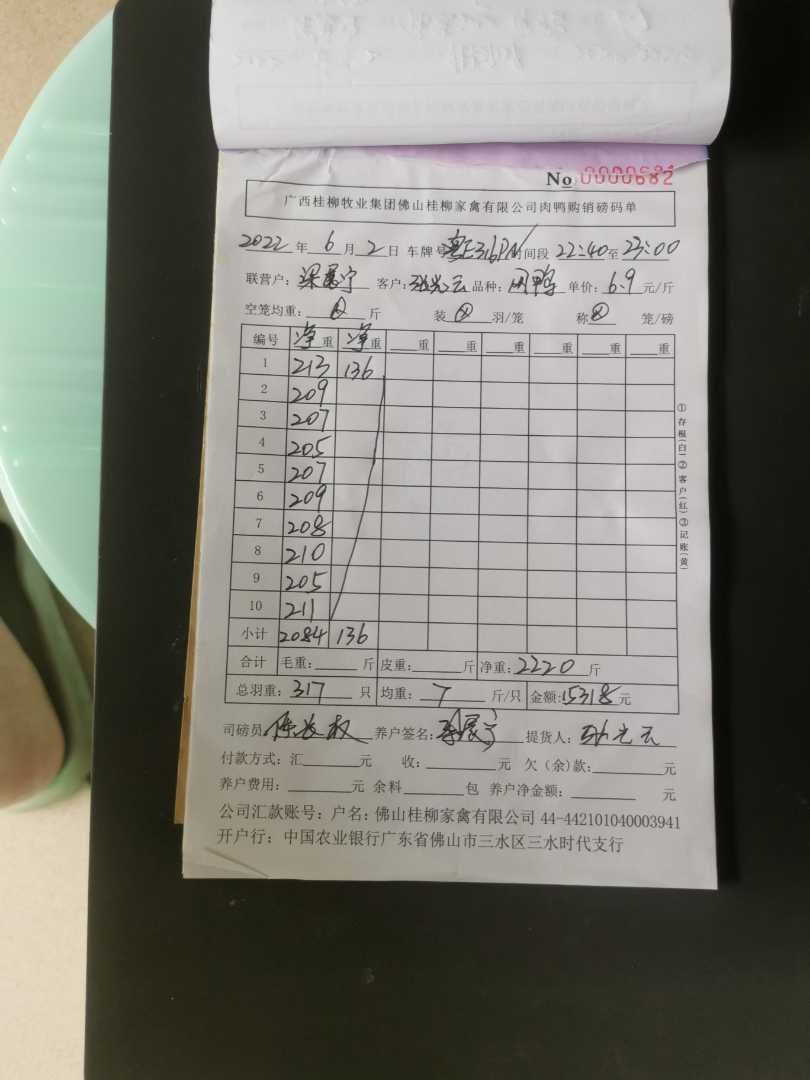 No 0000682
广西桂柳牧业集团佛山桂柳家禽有限公司肉鸭购销磅码单
2022年6月2日 车牌号 316 时间段 22:40至23:00
联营户： 客户： 品种：肉鸭 单价：6.9元/斤
空笼均重：斤 装 羽/笼 称 笼/磅
编号 净重 净重 重 重 重 重 重 重
1 213 136
2 209
3 207
4 205
5 207
6 209
7 208
8 210
9 205
10 211
小计 2084 136
合计 毛重：斤 皮重：斤 净重：2220斤
总羽重：317只 均重：7斤/只 金额：15318元
司磅员 养户签名： 提货人：
付款方式：汇元 收：元 欠（余）款：元
养户费用：元 余料包 养户净金额：元
公司汇款账号：户名：佛山桂柳家禽有限公司 44-442101040003941
开户行：中国农业银行广东省佛山市三水区三水时代支行
①存根(白)②客户(红)③记账(黄)